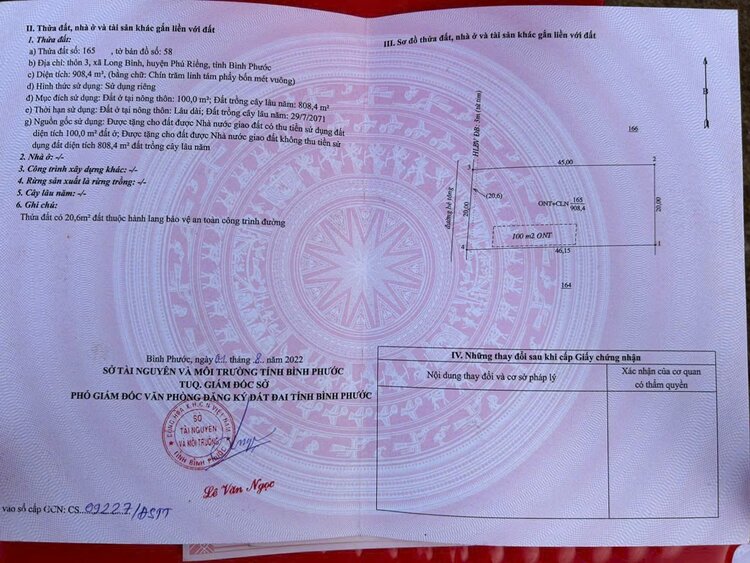 II. Thửa đất, nhà ở và tài sản khác gắn liền với đất
1. Thửa đất:
a) Thửa đất số: 165 , tờ bản đồ số: 58
b) Địa chỉ: thôn 3, xã Long Bình, huyện Phú Riềng, tỉnh Bình Phước
c) Diện tích: 908,4 m², (bằng chữ: Chín trăm linh tám phẩy bốn mét vuông)
d) Hình thức sử dụng: Sử dụng riêng
đ) Mục đích sử dụng: Đất ở tại nông thôn: 100,0 m²; Đất trồng cây lâu năm: 808,4 m²
e) Thời hạn sử dụng: Đất ở tại nông thôn: Lâu dài; Đất trồng cây lâu năm: 29/7/2071
g) Nguồn gốc sử dụng: Được tặng cho đất được Nhà nước giao đất có thu tiền sử dụng đất
diện tích 100,0 m² đất ở; Được tặng cho đất được Nhà nước giao đất không thu tiền sử
dụng đất diện tích 808,4 m² đất trồng cây lâu năm
2. Nhà ở: -/-
3. Công trình xây dựng khác: -/-
4. Rừng sản xuất là rừng trồng: -/-
5. Cây lâu năm: -/-
6. Ghi chú:
Thửa đất có 20,6m² đất thuộc hành lang bảo vệ an toàn công trình đường
Bình Phước, ngày 01 tháng 8 năm 2022
SỞ TÀI NGUYÊN VÀ MÔI TRƯỜNG TỈNH BÌNH PHƯỚC
TUQ. GIÁM ĐỐC SỞ
PHÓ GIÁM ĐỐC VĂN PHÒNG ĐĂNG KÝ ĐẤT ĐAI TỈNH BÌNH PHƯỚC
CỘNG HÒA X.H.C.N VIỆT NAM
SỞ
TÀI NGUYÊN
VÀ MÔI TRƯỜNG
TỈNH BÌNH PHƯỚC
Lê Văn Ngọc
vào sổ cấp GCN: CS 09227/ĐSTT
III. Sơ đồ thửa đất, nhà ở và tài sản khác gắn liền với đất
B
166
HLBV ĐB: 3m (bê tôn)
45,00
3
2
đường bê tông
20,00
(20,6)
ONT+CLN
165
908,4
20,00
100 m2 ONT
4
46,15
1
164
IV. Những thay đổi sau khi cấp Giấy chứng nhận
Nội dung thay đổi và cơ sở pháp lý
Xác nhận của cơ quan
có thẩm quyền